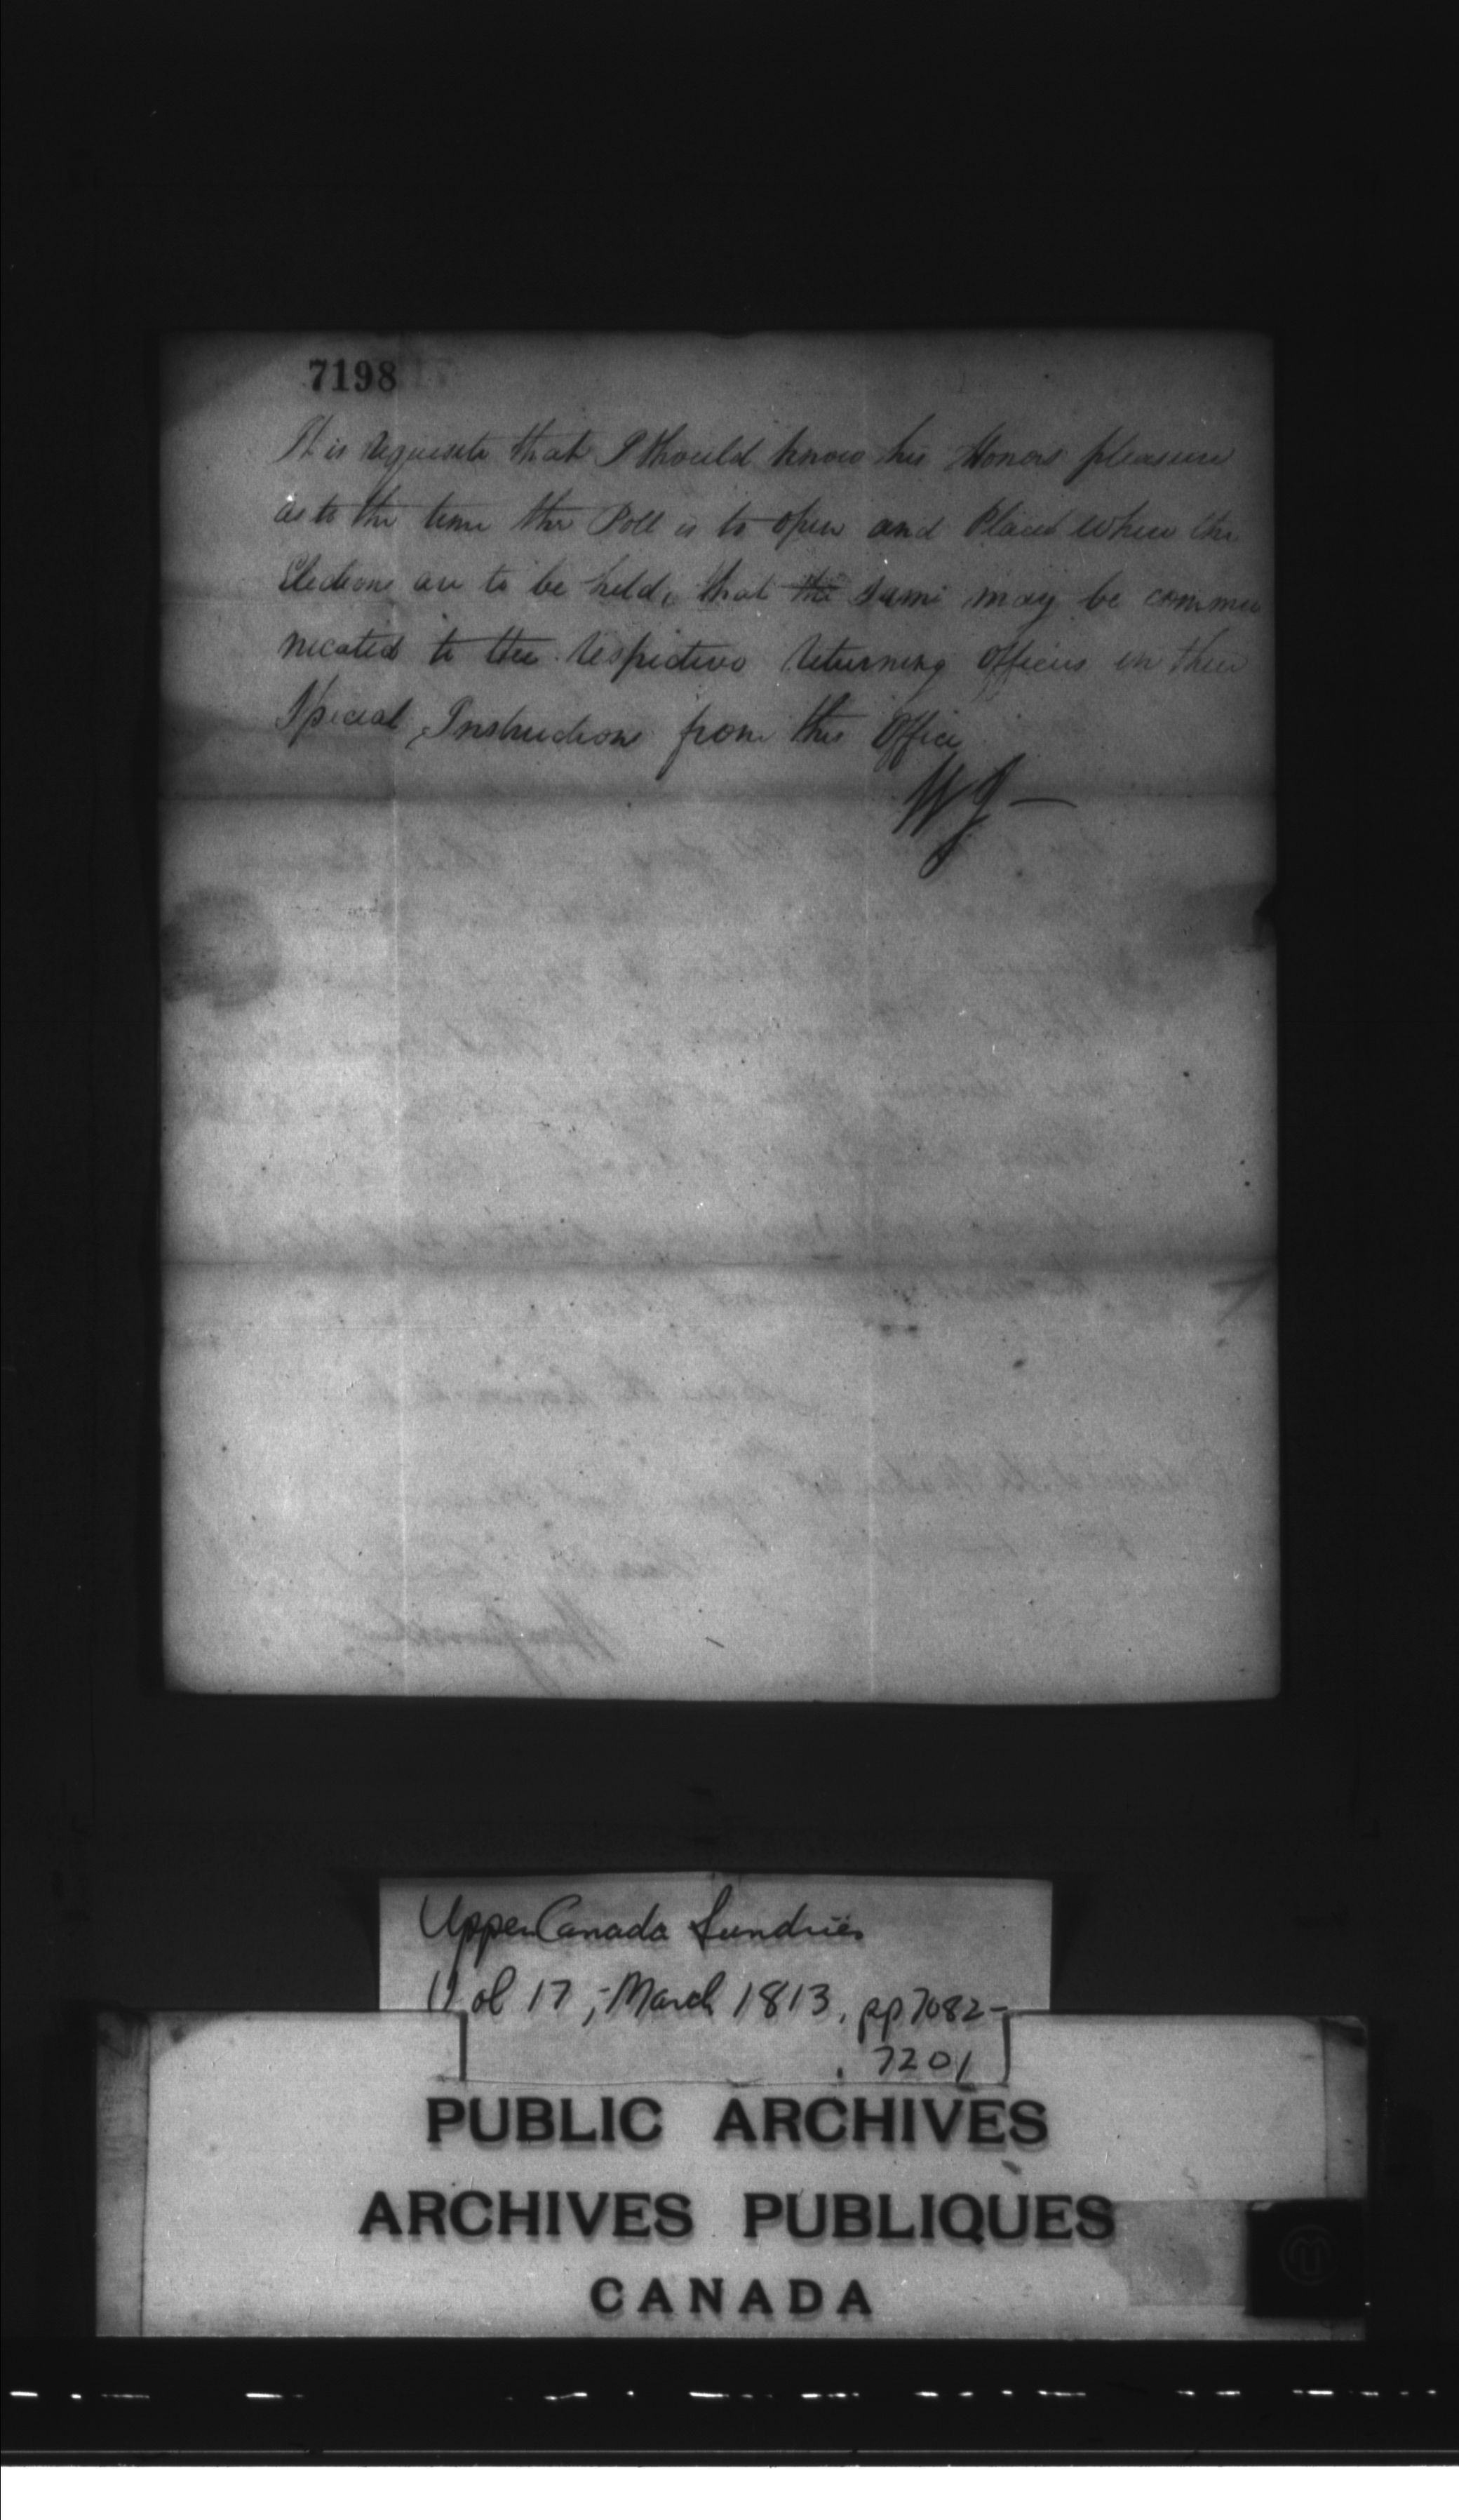 7198
It is requisite that I should know his Honors pleasure
as to the time the Poll is to open and Places where the
Elections are to be held, that the same may be commu
nicated to the respective returning officers in their
Special Instructions from this Office
WJ —
Upper Canada Sundries
Vol 17, - March 1813, pp 7082-
7201
PUBLIC ARCHIVES
ARCHIVES PUBLIQUES
CANADA